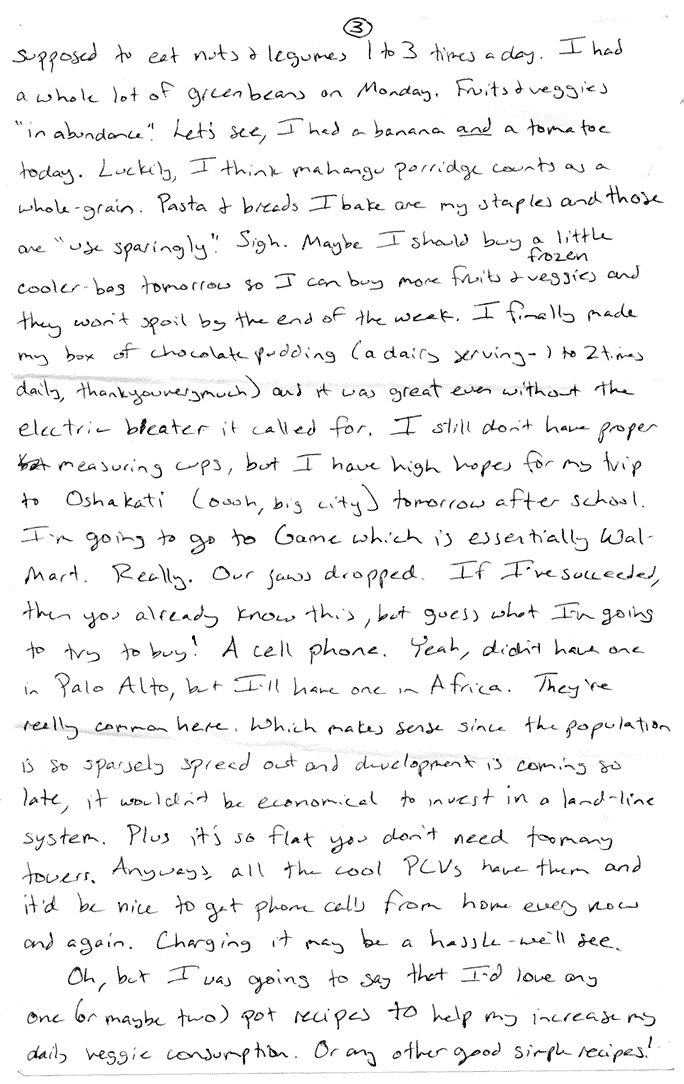 ③
supposed to eat nuts & legumes 1 to 3 times a day. I had
a whole lot of green beans on Monday. Fruits & veggies
"in abundance". Let's see, I had a banana and a tomatoe
today. Luckily, I think mahangu porridge counts as a
whole-grain. Pasta & breads I bake are my staples and those
are "use sparingly". Sigh. Maybe I should buy a little
frozen
cooler-bag tomorrow so I can buy more fruits & veggies and
they won't spoil by the end of the week. I finally made
my box of chocolate pudding (a dairy serving - 1 to 2 times
daily, thankyouverymuch) and it was great even without the
electric bleater it called for. I still don't have proper
measuring cups, but I have high hopes for my trip
to Oshakati (oooh, big city) tomorrow after school.
I'm going to go to Game which is essentially Wal-
Mart. Really. Our jaws dropped. If I've succeeded,
then you already know this, but guess what I'm going
to try to buy! A cell phone. Yeah, didn't have one
in Palo Alto, but I'll have one in Africa. They're
really common here. Which makes sense since the population
is so sparsely spread out and development is coming so
late, it wouldn't be economical to invest in a land-line
system. Plus it's so flat you don't need too many
towers. Anyways, all the cool PCVs have them and
it'd be nice to get phone calls from home every now
and again. Charging it may be a hassle - we'll see.
Oh, but I was going to say that I'd love any
one (or maybe two) pot recipes to help my increase my
daily veggie consumption. Or any other good simple recipes!